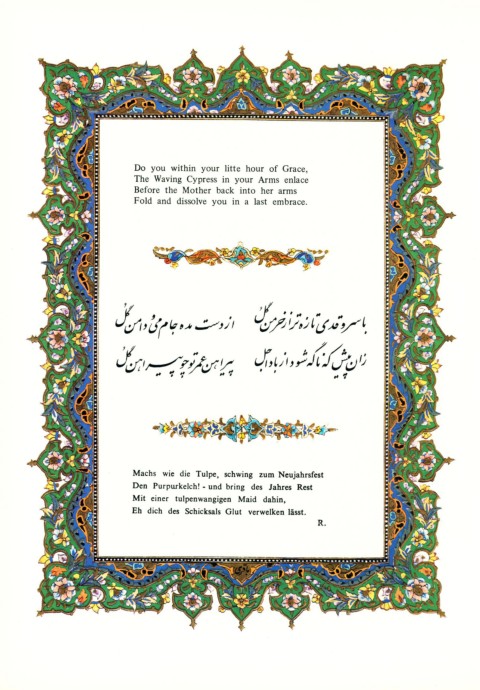 Do you within your litte hour of Grace,
The Waving Cypress in your Arms enlace
Before the Mother back into her arms
Fold and dissolve you in a last embrace.
با سرو قدی تازه تر از خرمن گل از دست مده جام می و دامن گل
زان پیش که ناگه شود از باد اجل پیراهن عمر تو چو پیراهن گل
Machs wie die Tulpe, schwing zum Neujahrsfest
Den Purpurkelch! - und bring des Jahres Rest
Mit einer tulpenwangigen Maid dahin,
Eh dich des Schicksals Glut verwelken lässt.
R.